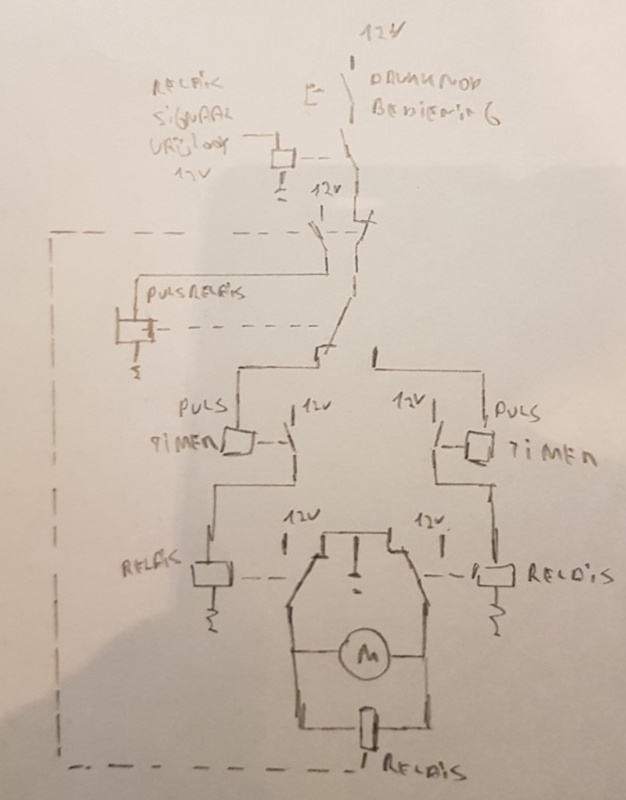 12V
DRUKKNOP
BEDIENING
RELAIS
SIGNAAL
VRIJLOOP
12V
12V
PULSRELAIS
PULS
TIMER
12V
12V
PULS
TIMER
12V
12V
RELAIS
RELAIS
M
RELAIS